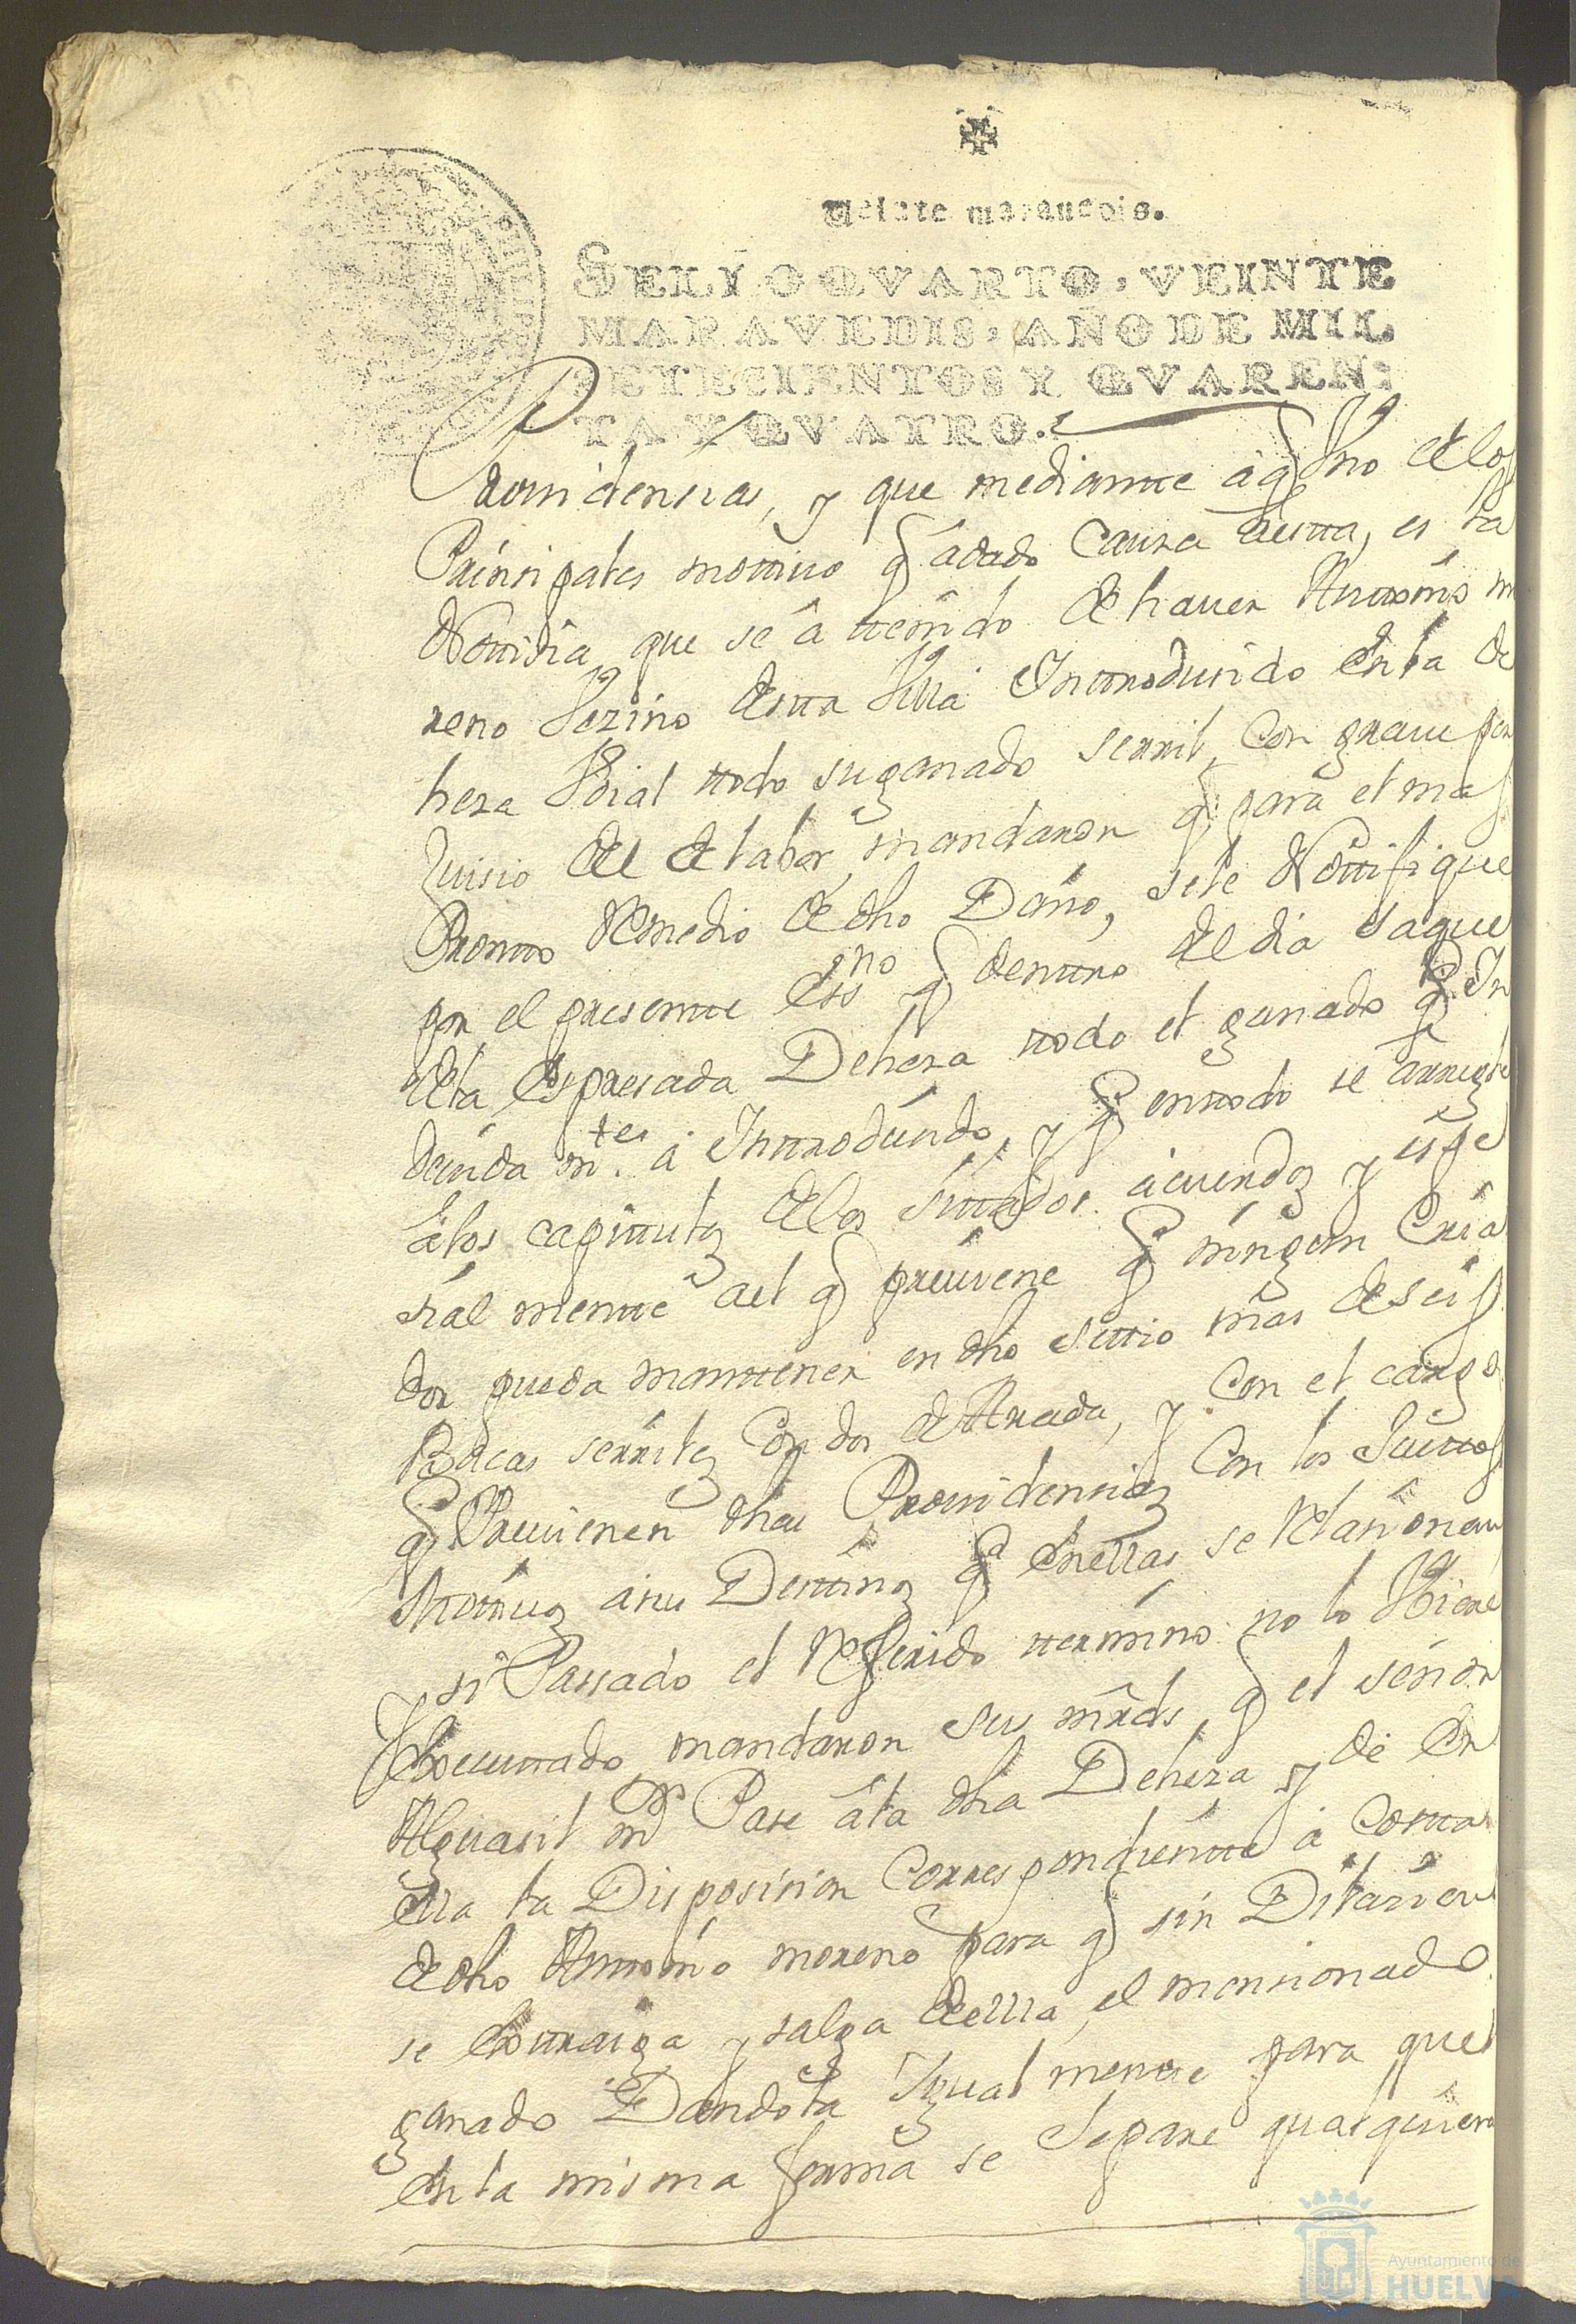 Veinte maravedis.
SELLO QVARTO, VEINTE
MARAVEDIS, AÑO DE MIL
SETECIENTOS Y QVAREN:
TA Y QVATRO.
Providensias, y que mediante à q Vno de los
Prinsipales mottiuo q à dado Causa a esta, es la
Nottisia que se à ttenido de hauer Anttonio mo
reno Vezino desta Villa Inttrodusido en la de
heza Boial ttodo su ganado serril, con graue per
Juisio del de labor, mandaron q para el mas
Promto Remedio de dho Daño, se le Nottifique
por el presentte Essno q denttro del dia saque
de la Espresada Deheza ttodo el ganado q In
deuida mte. à Inttrodusido, y q en ttodo se arregle
à los capittulos de los sittados acuerdos y espe
sial mentte a el q preuiene q ningun Cria
dor pueda manttener en dho sittio mas de seis
Bacas serriles Con dos de Arada, y Con el cargo d
q Preuienen dhas Prouidensias Con los Suettos
Nottiuos à sus Desttinos q en ellas se Relasionan
y si Passado el Referido ttermino no lo Vbiere
Executtado mandaron sus mrds, q el señor
Alguasil mor Pase à la dha Deheza y de en
ella la Disposision Correspondientte à Costta
de dho Anttonio moreno para q sin Dilasion
se Exttraiga y salga de ella, el mensionado
ganado Dandola Igual mente para que
en la misma forma se Separe qualquiera
Ayuntamiento de
HUELVA